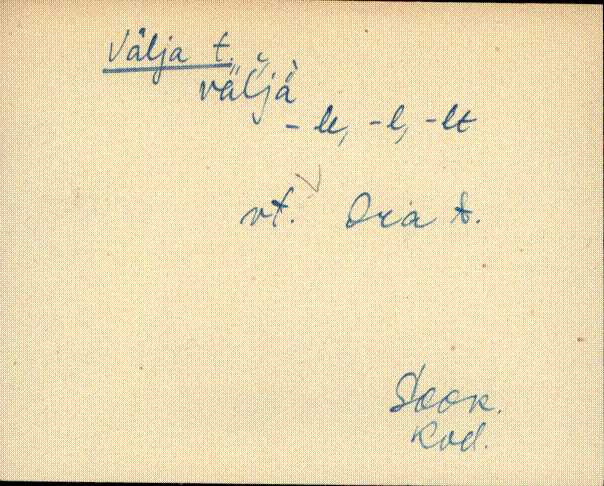 Välja t.
väljà
-le, -l, -lt
vt. Oia t.
Sook.
Kod.